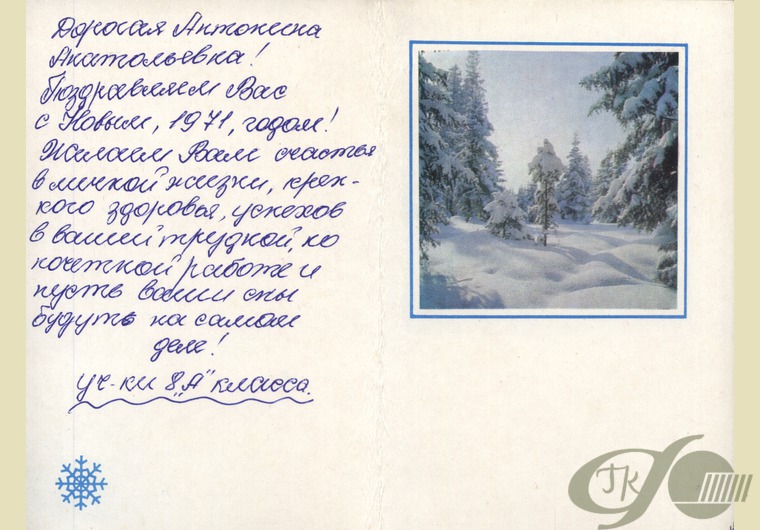 Дорогая Антонина
Анатольевна!
Поздравляем Вас
с Новым, 1971, годом!
Желаем Вам счастья
в личной жизни, креп-
кого здоровья, успехов
в вашей трудной, но
почетной работе и
пусть ваши сны
будуть на самом
деле!
уч-ки 8 „А" класса.
ГК